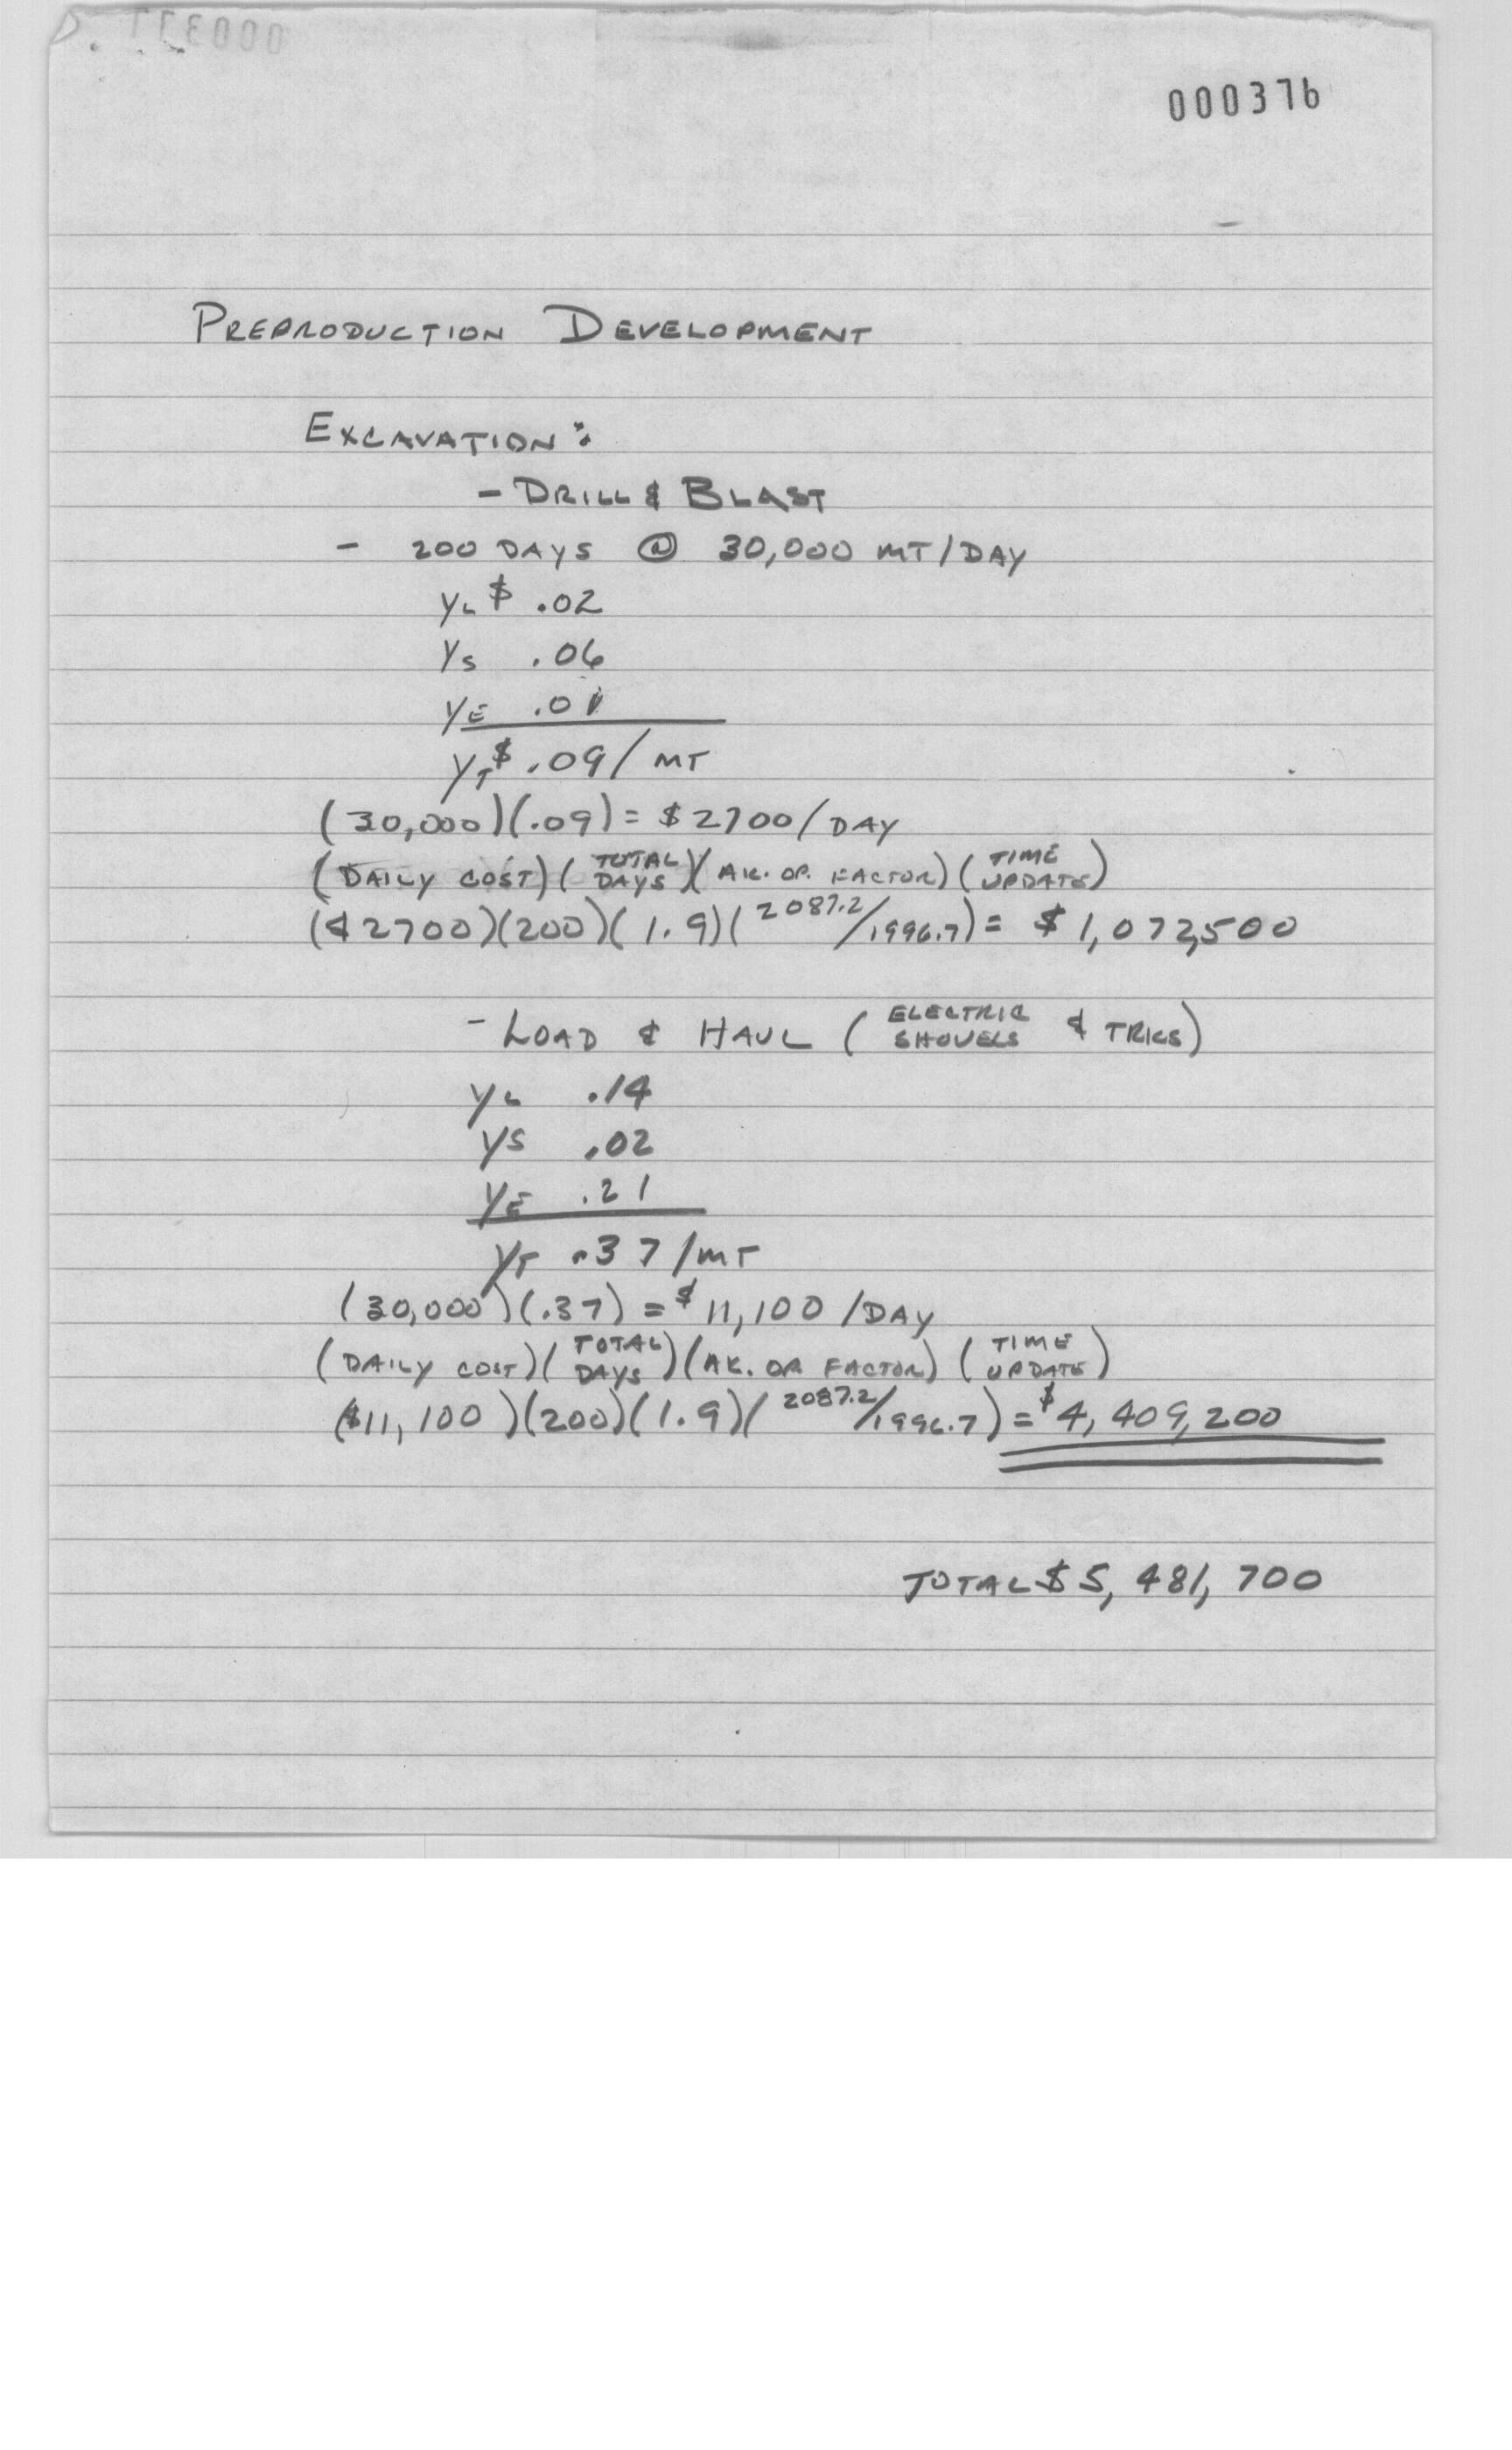 000376
PREPRODUCTION DEVELOPMENT
EXCAVATION:
- DRILL & BLAST
- 200 DAYS @ 30,000 MT/DAY
YL $ .02
YS .06
YE .01
YT $ .09/MT
(30,000)(.09) = $2700/DAY
(DAILY COST)(TOTAL DAYS)(AK. OP. FACTOR)(TIME UPDATE)
($2700)(200)(1.9)(2087.2/1996.7) = $1,072,500
- LOAD & HAUL (ELECTRIC SHOVELS & TRKS)
YL .14
YS .02
YE .21
YT .37/MT
(30,000)(.37) = $11,100/DAY
(DAILY COST)(TOTAL DAYS)(AK. OP FACTOR)(TIME UPDATE)
($11,100)(200)(1.9)(2087.2/1996.7) = $4,409,200
TOTAL $5,481,700